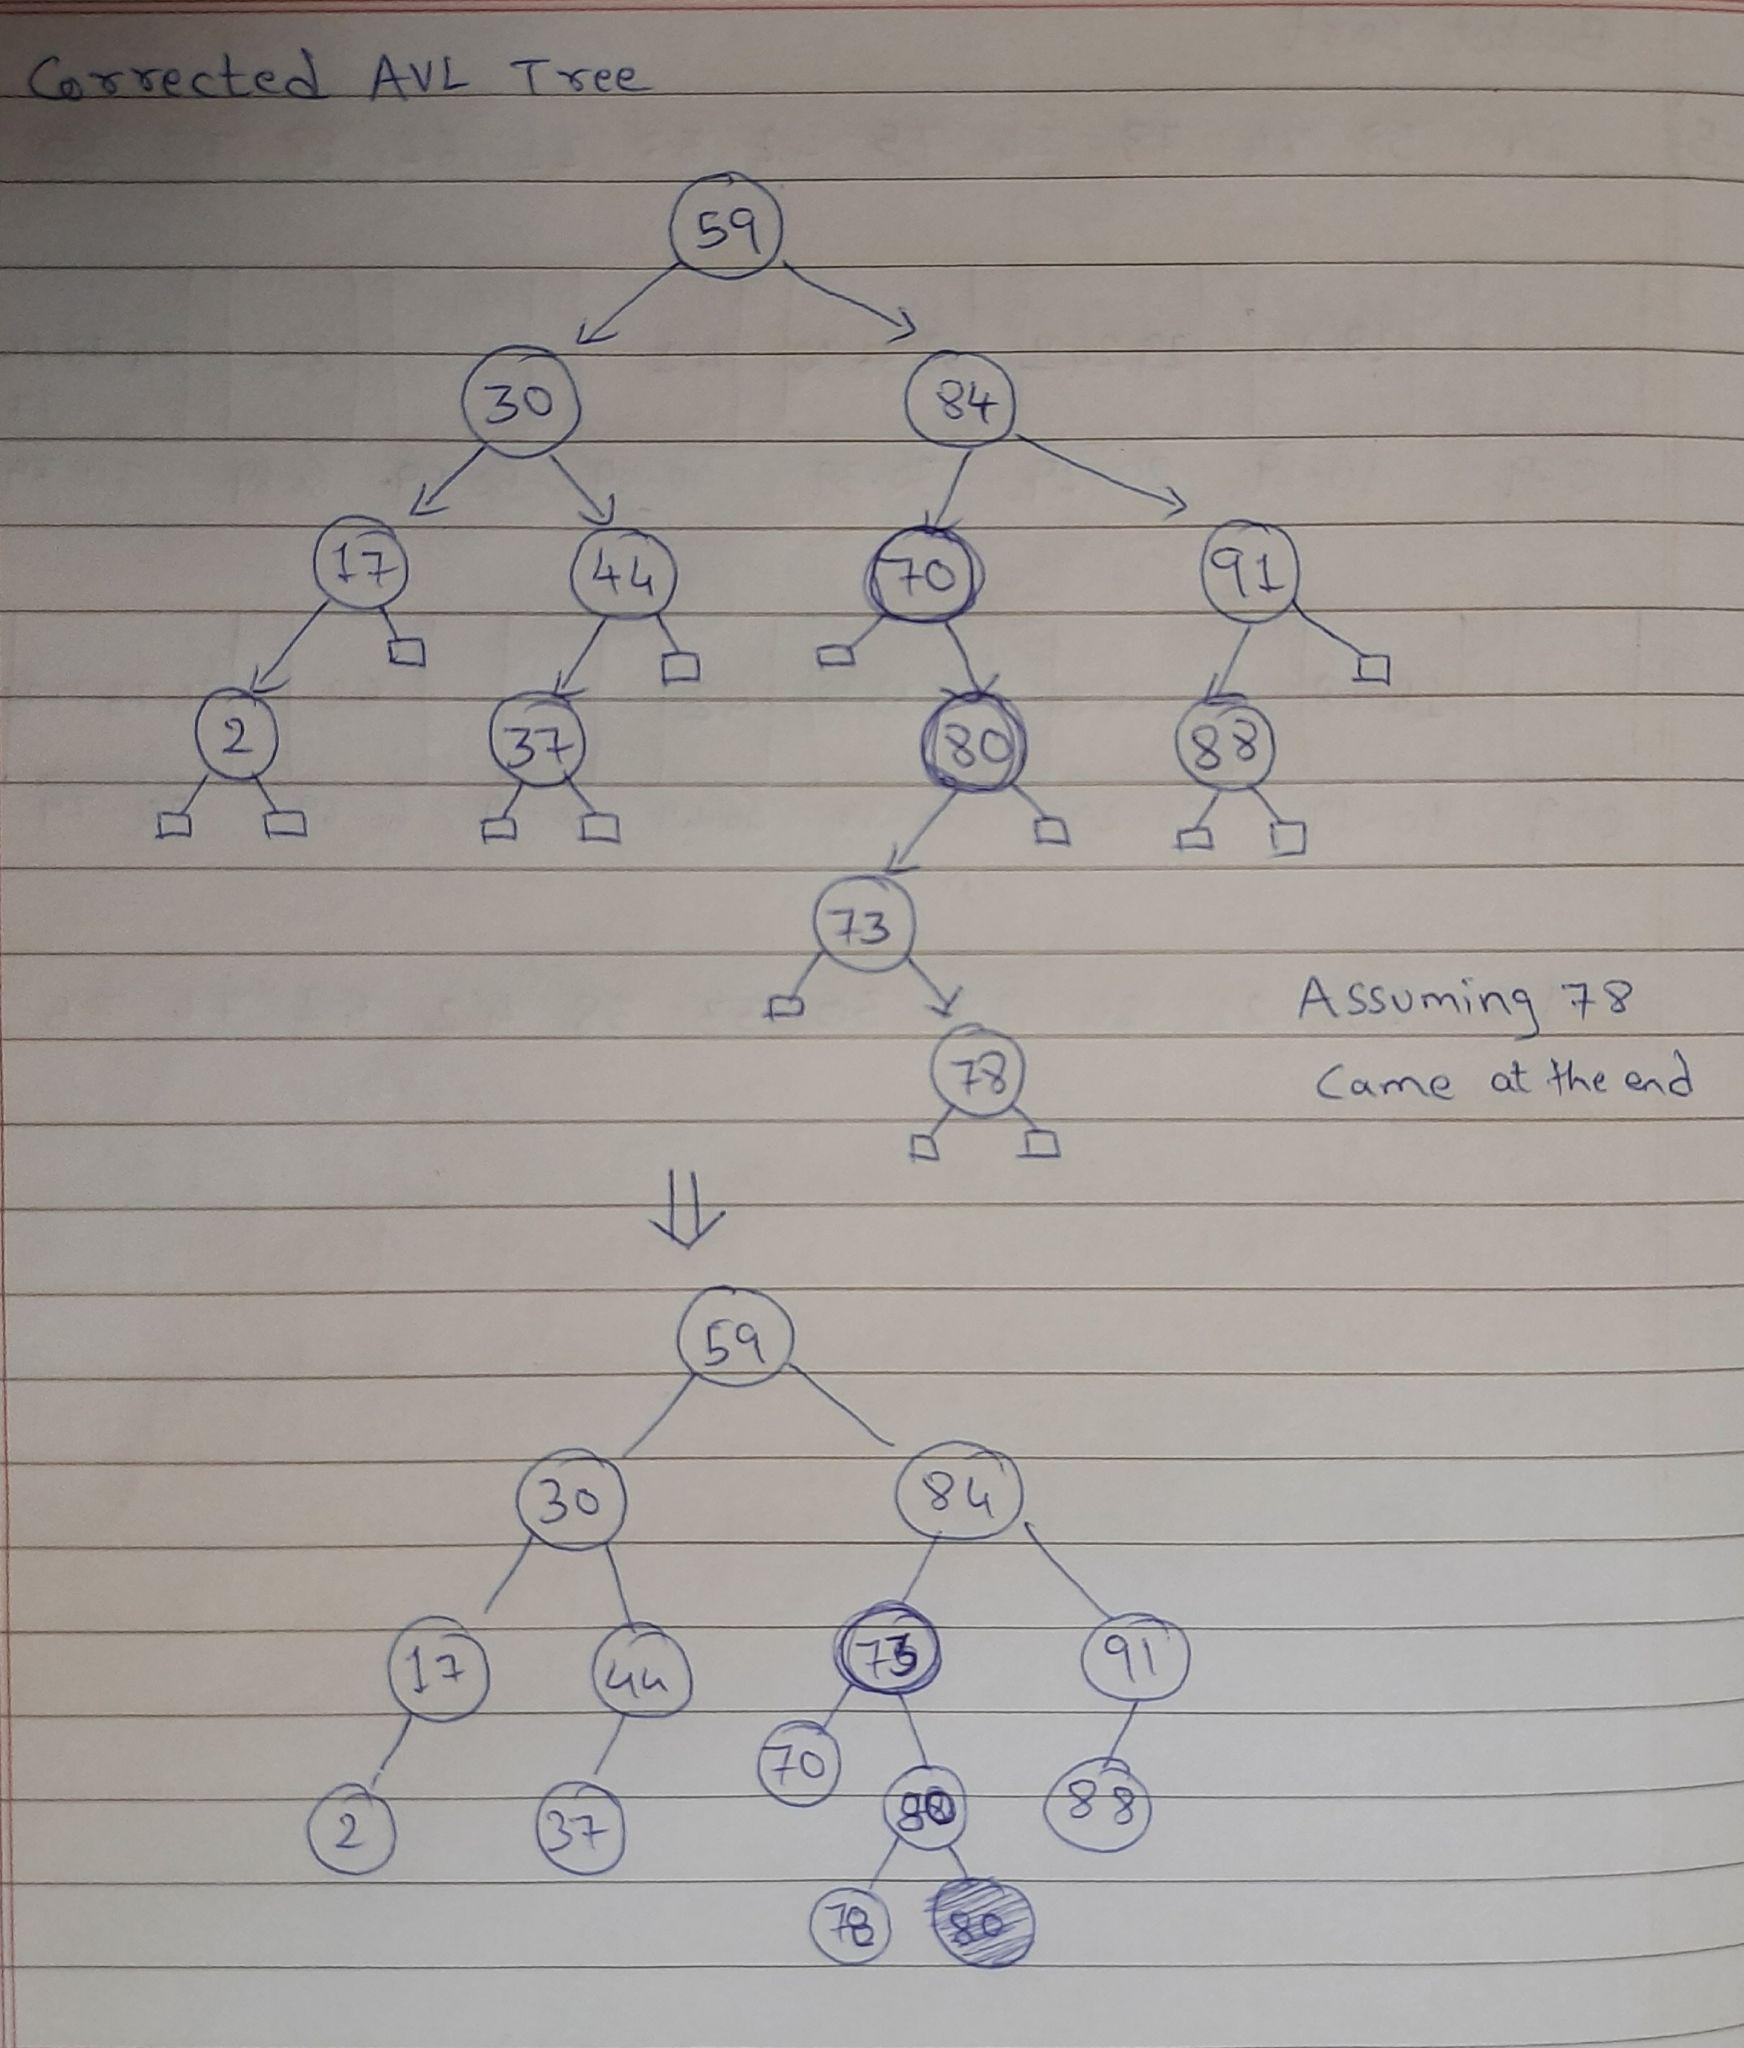 Corrected AVL Tree
59
30 84
17 44 70 91
2 37 80 88
73
Assuming 78
78 Came at the end
59
30 84
17 44 73 91
70
2 37 80 88
78 80